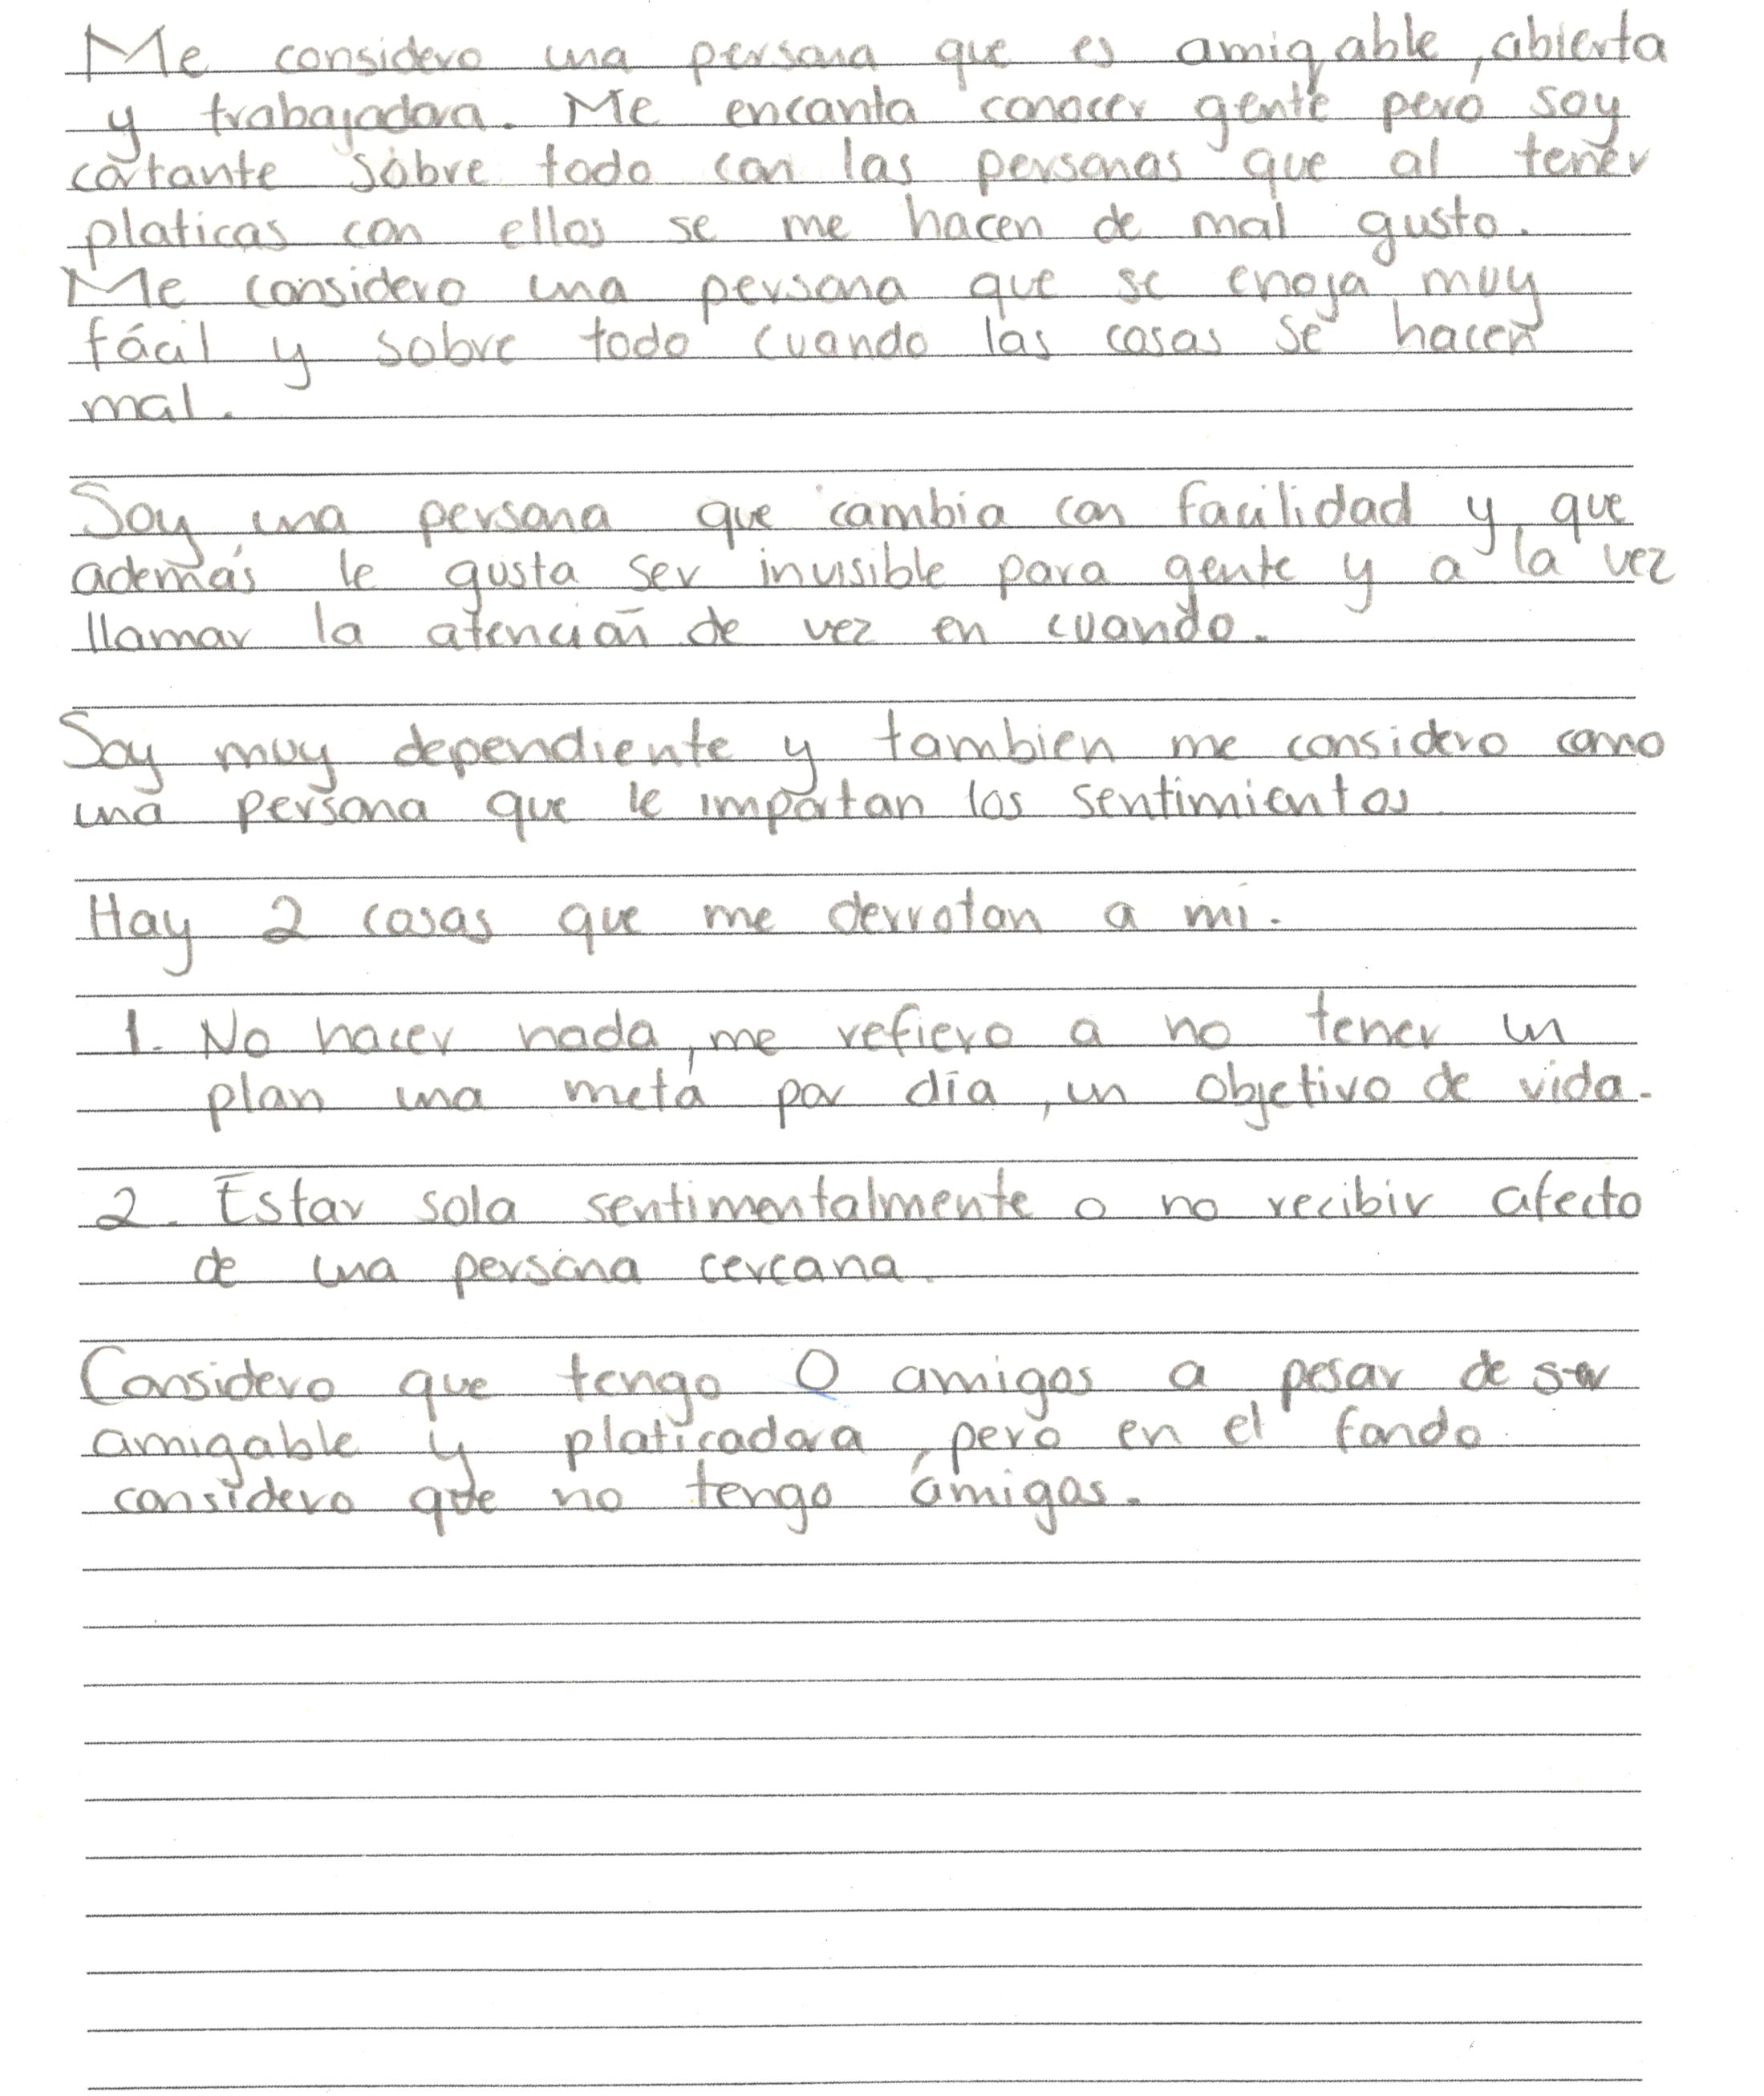 Me considero una persona que es amigable, abierta
y trabajadora. Me encanta conocer gente pero soy
cortante sobre todo con las personas que al tener
platicas con ellos se me hacen de mal gusto.
Me considero una persona que se enoja muy
fácil y sobre todo cuando las cosas se hacen
mal.
Soy una persona que cambia con facilidad y que
además le gusta ser invisible para gente y a la vez
llamar la atención de vez en cuando.
Soy muy dependiente y tambien me considero como
una persona que le importan los sentimientos
Hay 2 cosas que me derrotan a mi.
1. No hacer nada, me refiero a no tener un
plan una meta por día, un objetivo de vida.
2. Estar sola sentimentalmente o no recibir afecto
de una persona cercana.
Considero que tengo 0 amigos a pesar de ser
amigable y platicadora, pero en el fondo
considero que no tengo amigos.